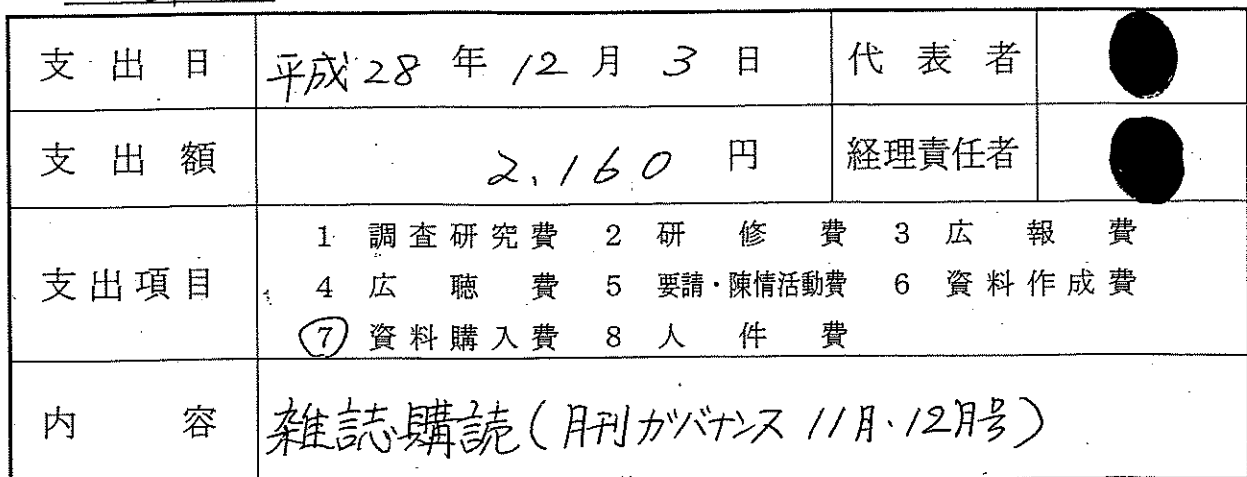 支出日 平成28年12月3日 代表者
支出額 2,160円 経理責任者
1 調査研究費 2 研修費 3 広報費
支出項目 4 広聴費 5 要請・陳情活動費 6 資料作成費
7 資料購入費 8 人件費
内容 雑誌購読(月刊ガバナンス11月・12月号)